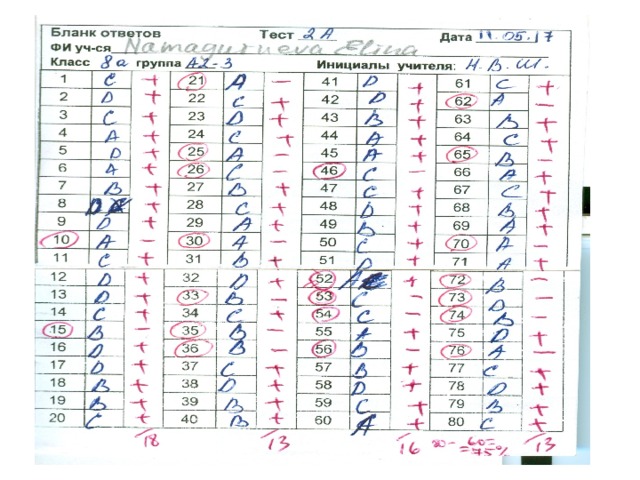 Бланк ответов Тест 2A Дата 11.05.17
ФИ уч-ся Namagurueva Elina
Класс 8а группа А2-3 Инициалы учителя: Н.В.Ш.
1 C + 21 A - 41 D + 61 C +
2 D + 22 C + 42 D + 62 A -
3 C + 23 D + 43 B + 63 B +
4 A + 24 C + 44 A + 64 C +
5 D + 25 A - 45 A + 65 B -
6 A + 26 C - 46 C - 66 A +
7 B + 27 B + 47 C + 67 C +
8 D + 28 C + 48 D + 68 B +
9 D + 29 A + 49 B + 69 A +
10 A - 30 A - 50 C + 70 A -
11 C + 31 B + 51 D + 71 A +
12 D + 32 D + 52 A + 72 B -
13 D + 33 B - 53 C - 73 D -
14 C + 34 C + 54 C - 74 B -
15 B - 35 B - 55 A + 75 D +
16 D + 36 B - 56 B - 76 A -
17 D + 37 C + 57 B + 77 C +
18 B + 38 D + 58 D + 78 D +
19 B + 39 B + 59 C + 79 B +
20 C + 40 B + 60 A + 80 C +
18 13 16 80- 60= 13
=75%